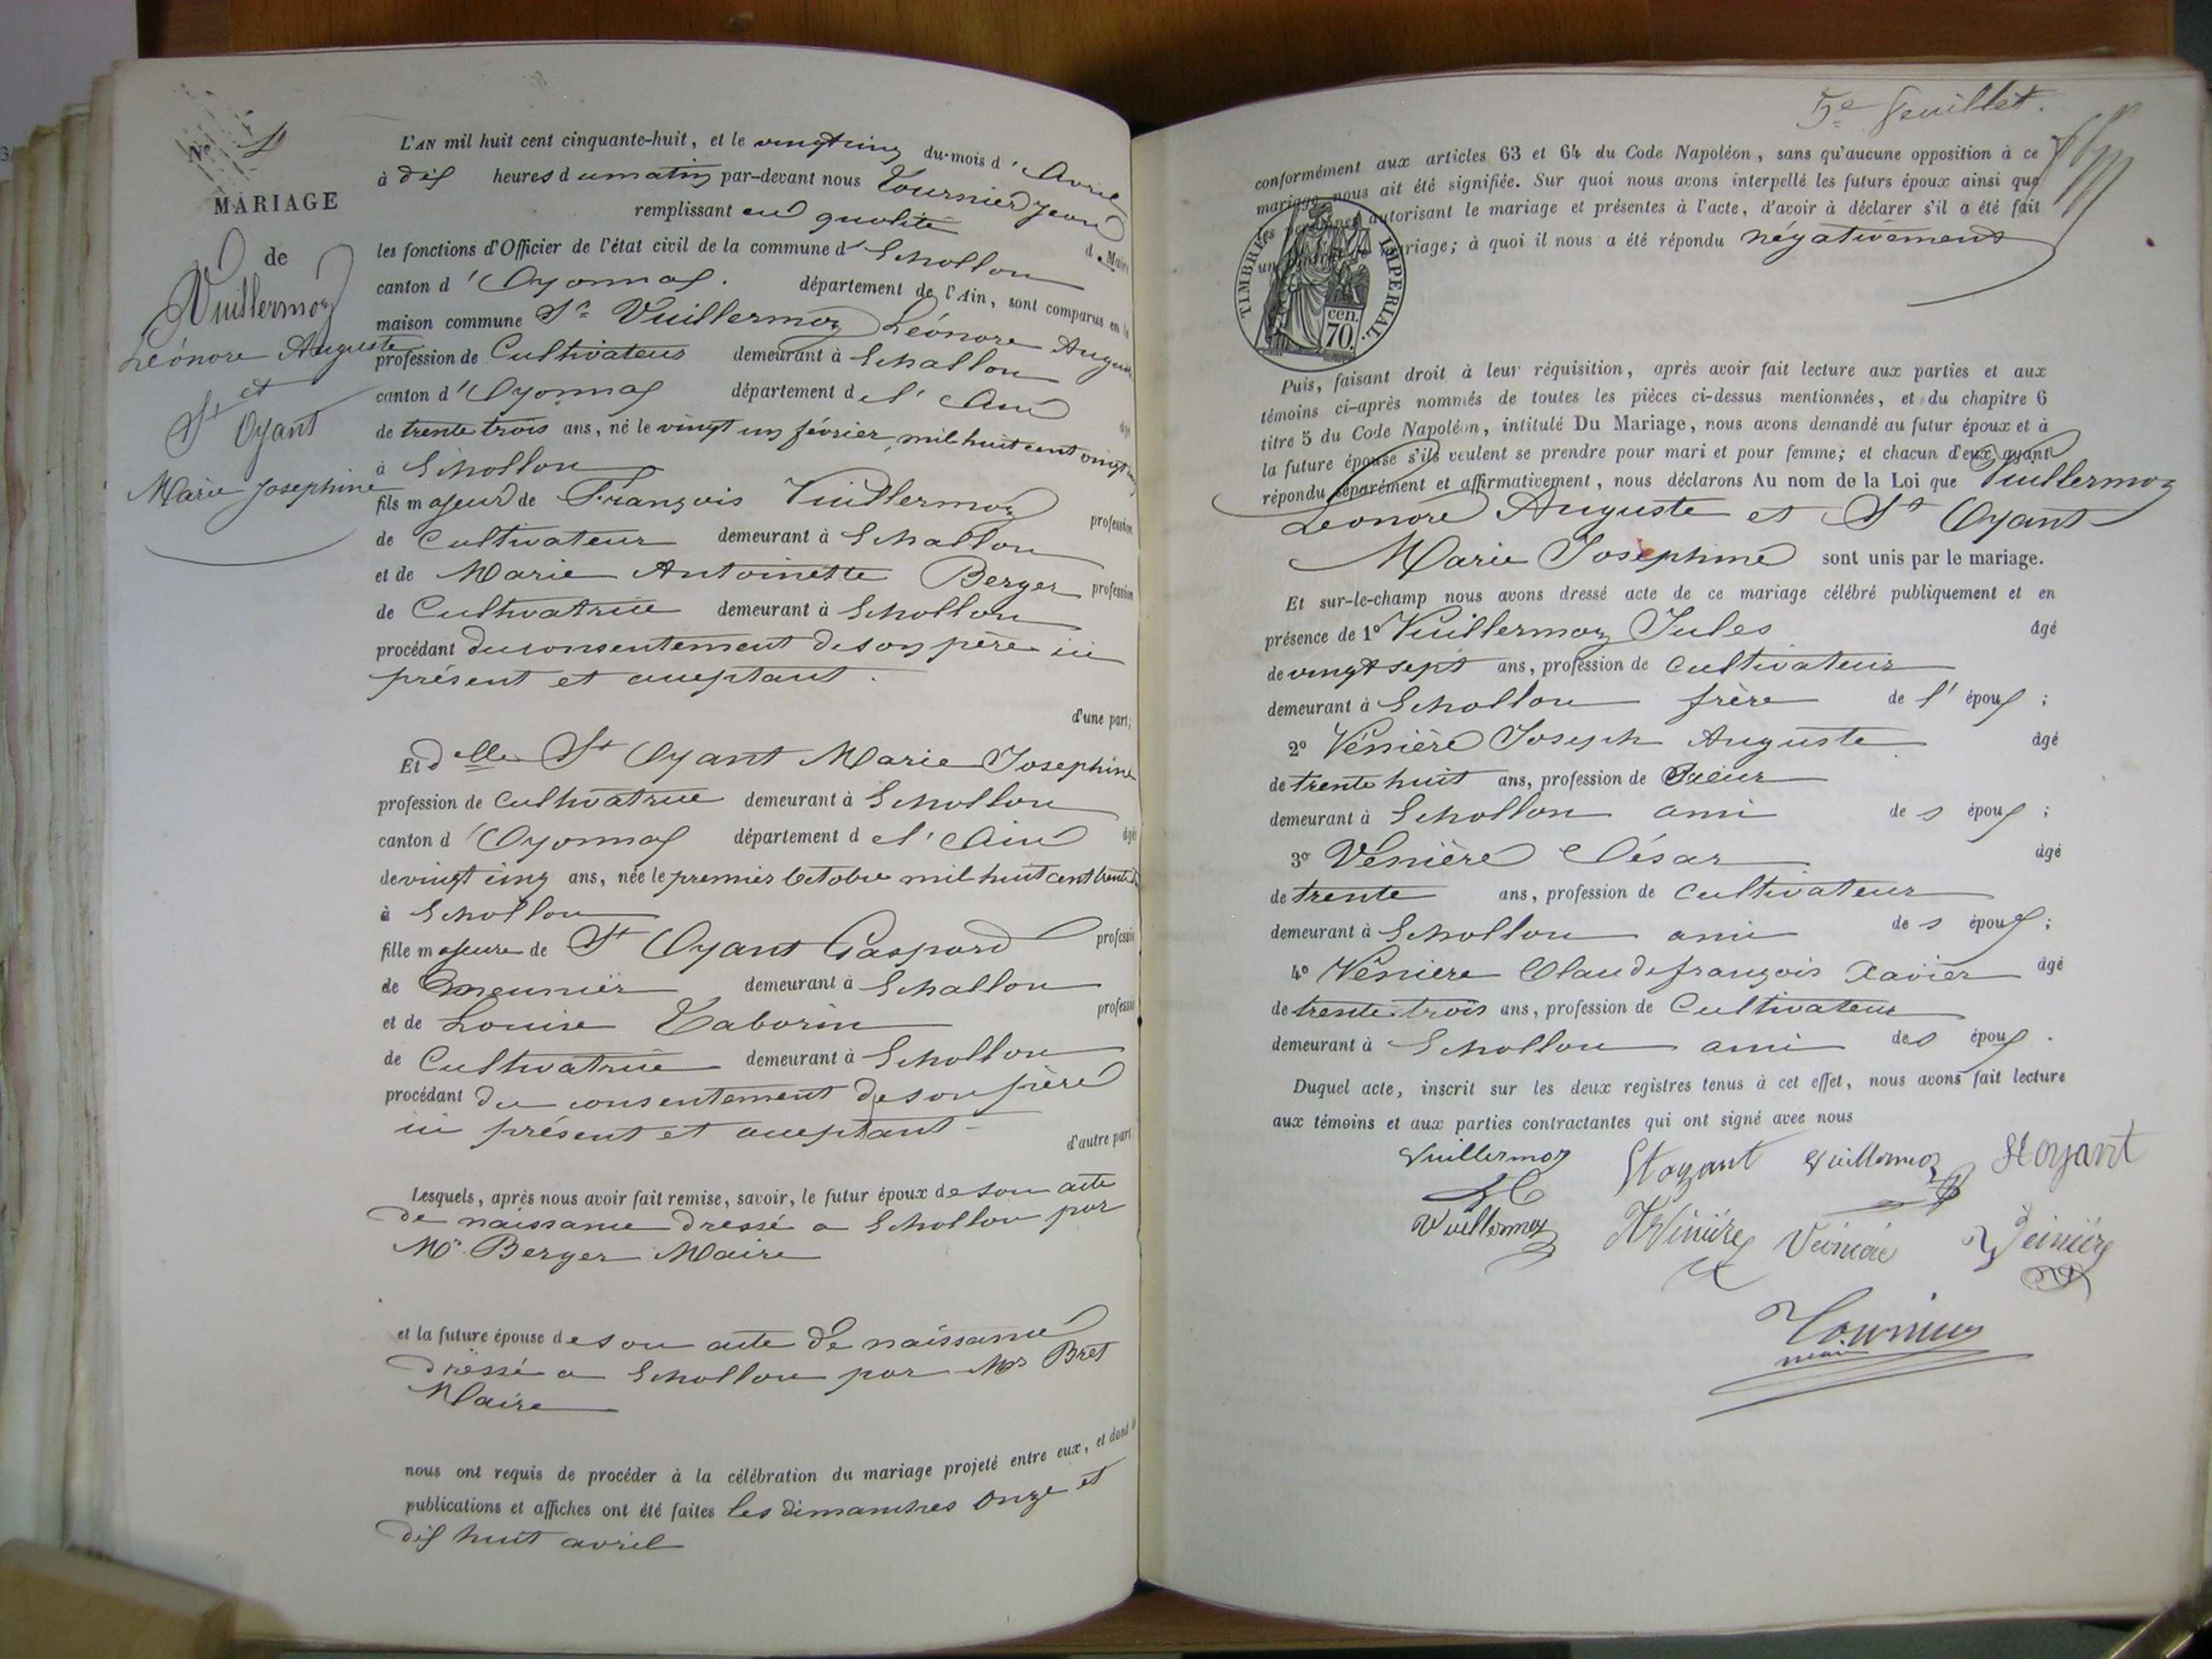 MARIAGE
de
Vuillermoz
Léonore Auguste
et
St Oyant
Marie Josephine
L'AN mil huit cent cinquante-huit, et le vingt cinq du mois d'Avril
à dix heures du matin par-devant nous Tournier Jean
remplissant en qualité de Maire
les fonctions d'Officier de l'état civil de la commune d'Echallon
canton d'Oyonnax. département de l'Ain, sont comparus en la
maison commune Sr Vuillermoz Léonore Auguste
profession de Cultivateur demeurant à Echallon
canton d'Oyonnax département de l'Ain âgé
de trente trois ans, né le vingt un février mil huit cent vingt
à Echallon
fils majeur de François Vuillermoz profession
de Cultivateur demeurant à Echallon
et de Marie Antoinette Berger profession
de Cultivatrice demeurant à Echallon
procédant du consentement de son père ici
présent et acceptant.
d'une part;
Et delle St Oyant Marie Josephine
profession de cultivatrice demeurant à Echallon
canton d'Oyonnax département de l'Ain âgée
de vingt cinq ans, née le premier Octobre mil huit cent trente
à Echallon
fille majeure de St Oyant Gaspard profession
de meunier demeurant à Echallon
et de Louise Taborin profession
de Cultivatrice demeurant à Echallon
procédant du consentement de son père
ici présent et acceptant
d'autre part
Lesquels, après nous avoir fait remise, savoir, le futur époux de son acte
de naissance dressé a Echallon par
Mr Berger Maire
et la future épouse de son acte de naissance
dressé a Echallon par Mr Bret
Maire
nous ont requis de procéder à la célébration du mariage projeté entre eux, et dont les
publications et affiches ont été faites les dimanches onze et
dix huit avril
5e feuillet.
conformément aux articles 63 et 64 du Code Napoléon, sans qu'aucune opposition à ce
mariage nous ait été signifiée. Sur quoi nous avons interpellé les futurs époux ainsi que
les personnes autorisant le mariage et présentes à l'acte, d'avoir à déclarer s'il a été fait
un contrat de mariage; à quoi il nous a été répondu négativement
TIMBRE IMPERIAL.
cen.
70.
Puis, faisant droit à leur réquisition, après avoir fait lecture aux parties et aux
témoins ci-après nommés de toutes les pièces ci-dessus mentionnées, et du chapitre 6
titre 5 du Code Napoléon, intitulé Du Mariage, nous avons demandé au futur époux et à
la future épouse s'ils veulent se prendre pour mari et pour femme; et chacun d'eux ayant
répondu séparément et affirmativement, nous déclarons Au nom de la Loi que Vuillermoz
Léonore Auguste et St Oyant
Marie Josephine sont unis par le mariage.
Et sur-le-champ nous avons dressé acte de ce mariage célébré publiquement et en
présence de 1º Vuillermoz Jules âgé
de vingt sept ans, profession de cultivateur
demeurant à Echallon frère de l'époux;
2º Vénière Joseph Auguste âgé
de trente huit ans, profession de
demeurant à Echallon ami des époux;
3º Vénière César âgé
de trente ans, profession de cultivateur
demeurant à Echallon ami des époux;
4º Vénière Claude françois Xavier âgé
de trente trois ans, profession de Cultivateur
demeurant à Echallon ami des époux.
Duquel acte, inscrit sur les deux registres tenus à cet effet, nous avons fait lecture
aux témoins et aux parties contractantes qui ont signé avec nous
Vuillermoz Stoyant Vuillermoz Stoyant
Vuillermoz Vénière Vénière Vénière
Tournier
maire